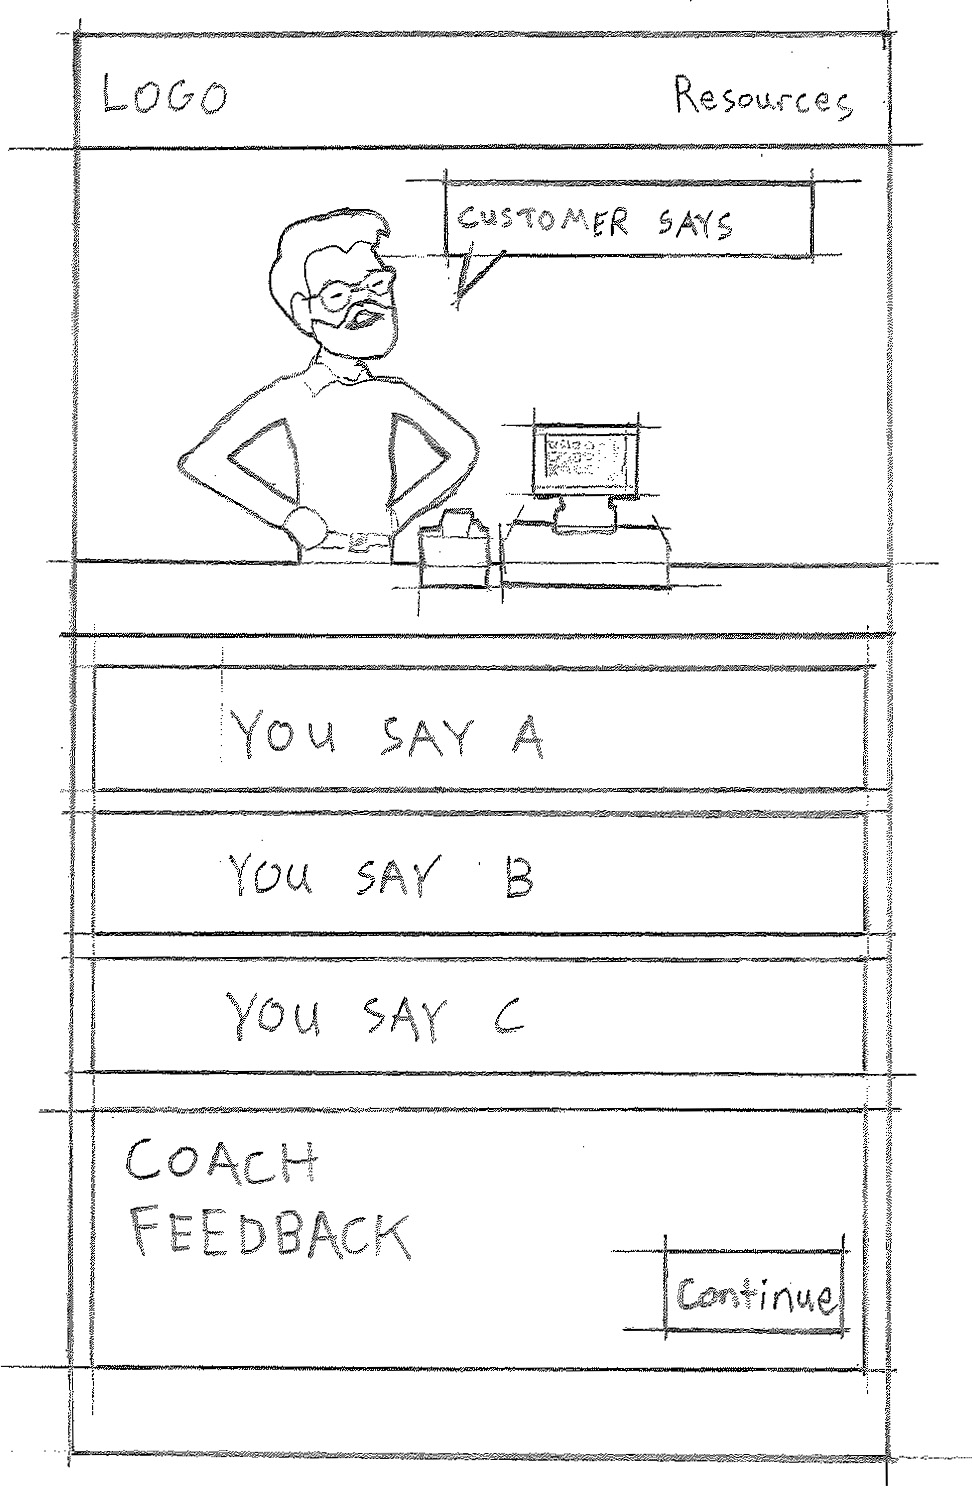 LOGO
Resources
CUSTOMER SAYS
YOU SAY A
YOU SAY B
YOU SAY C
COACH
FEEDBACK
Continue